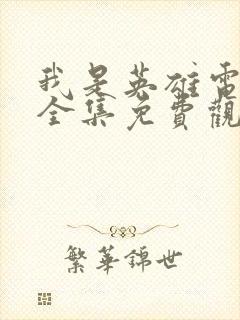 我是英雄電
全集免費觀
繁華錦世